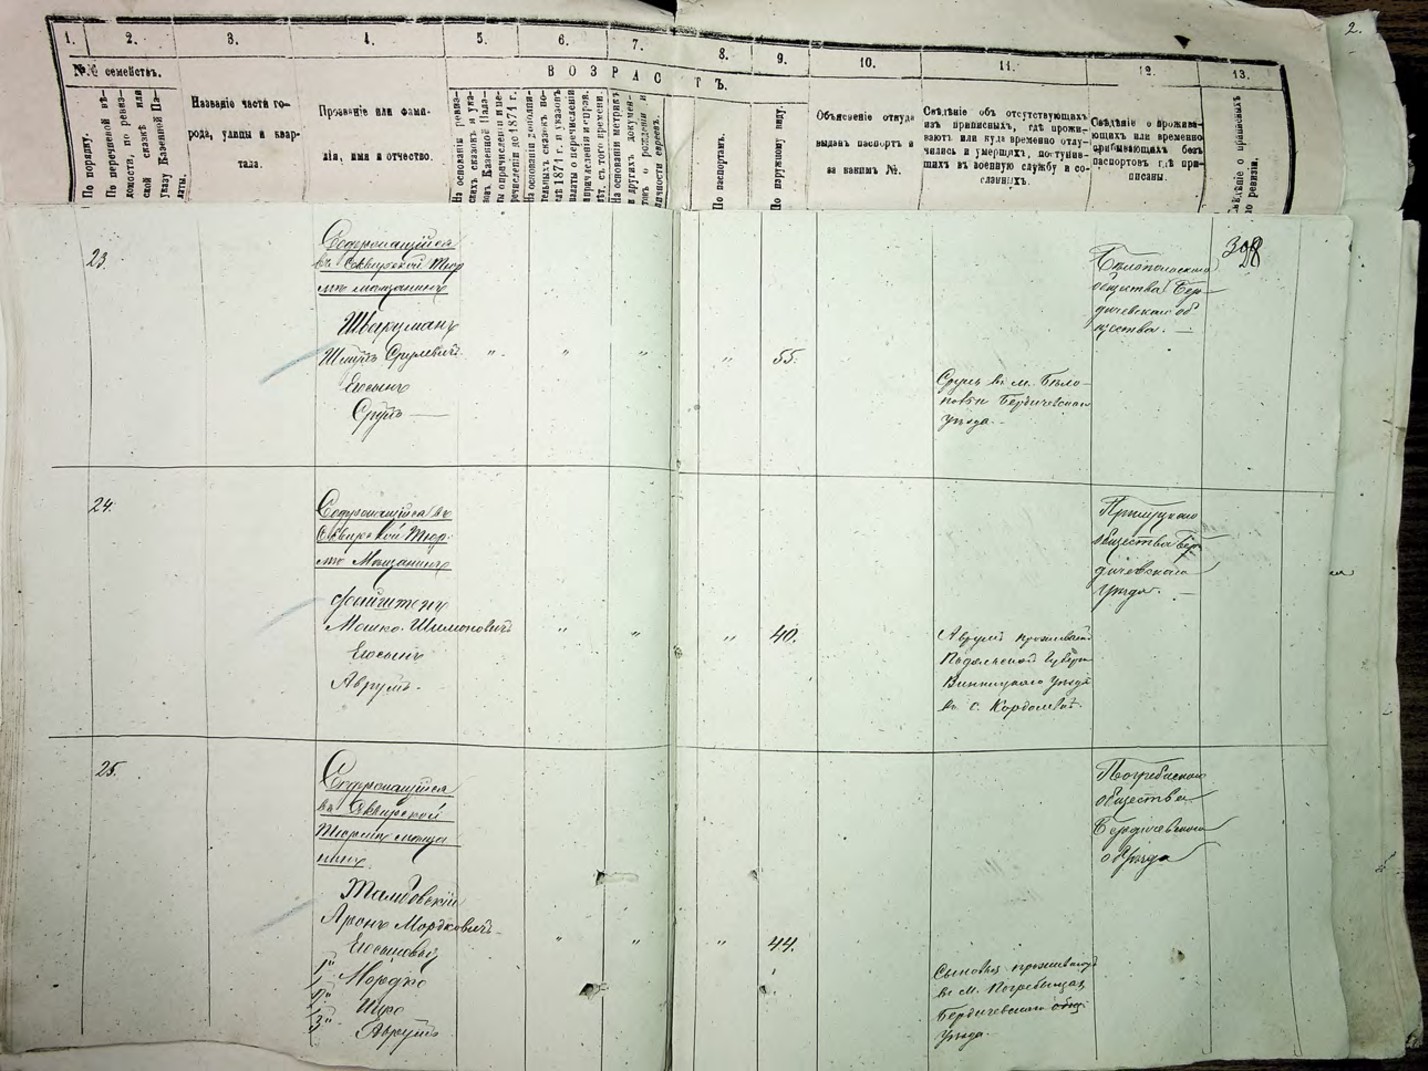 2.
1.
2.
3.
4.
5.
6.
7.
8.
9.
10.
11.
12.
13.
№№ семействъ.
По порядку.
По перечневой вѣ-
домости, по ревиз-
ской сказкѣ или
указу Казенной Па-
латы.
Названіе части го-
рода, улицы и квар-
тала.
Прозваніе или фами-
лія, имя и отчество.
ВОЗРАСТЪ.
На основаніи ревиз-
скихъ сказокъ и ука-
зовъ Казенной Пала-
ты о причисленіи и пе-
речисленіи до 1871 г.
На основаніи дополни-
тельныхъ сказокъ по-
слѣ 1871 г. и указовъ
палаты о перечисленіи
На основаніи метрикъ
и другихъ докумен-
товъ о рожденіи и
личности евреевъ.
По паспортамъ.
По наружному виду.
Объясненіе откуда
выданъ паспортъ и
за какимъ №.
Свѣдѣніе объ отсутствующихъ
изъ приписныхъ, гдѣ прожи-
ваютъ или куда временно отлу-
чились и умершихъ, поступив-
шихъ въ военную службу и со-
сланныхъ.
Свѣдѣніе о прожива-
ющихъ или временно
прибывающихъ безъ
паспортовъ гдѣ при-
писаны.
Свѣдѣніе о
по ревизіи.
398
23.
Содержащійся
въ Сквирской Тюр
мѣ мѣщанинъ
Шмуль Срулевичъ
Егосынъ
Сруль
" " " " 55.
Сруль въ м. Бѣло-
полѣ Бердичевскаго
уѣзда.
Бѣлопольскаго
общества Бер-
дичевскаго об
щества.
24.
Содержащійся въ
Сквирской Тюр-
мѣ Мѣщанинъ
Мошко Шимоновичъ
Егосынъ
Аврумъ.
" " " 40.
Аврумъ проживаетъ
Подольской Губерн
Винницкаго уѣзда
въ с. Кордалевкѣ.
общества Бер-
дичевскаго
уѣзда.
25.
Содержащійся
въ Сквирской
Тюрмѣ мѣща
нинъ
Тамбовскій
Аронъ Мордковичъ
Егосыновья
1й Мордко
2й
3й Аврумъ
" " " 44.
Сыновья проживаютъ
въ м. Погребищахъ
Бердичевскаго общ.
уѣзда.
Погребискаго
общества
Бердичевскаго
уѣзда